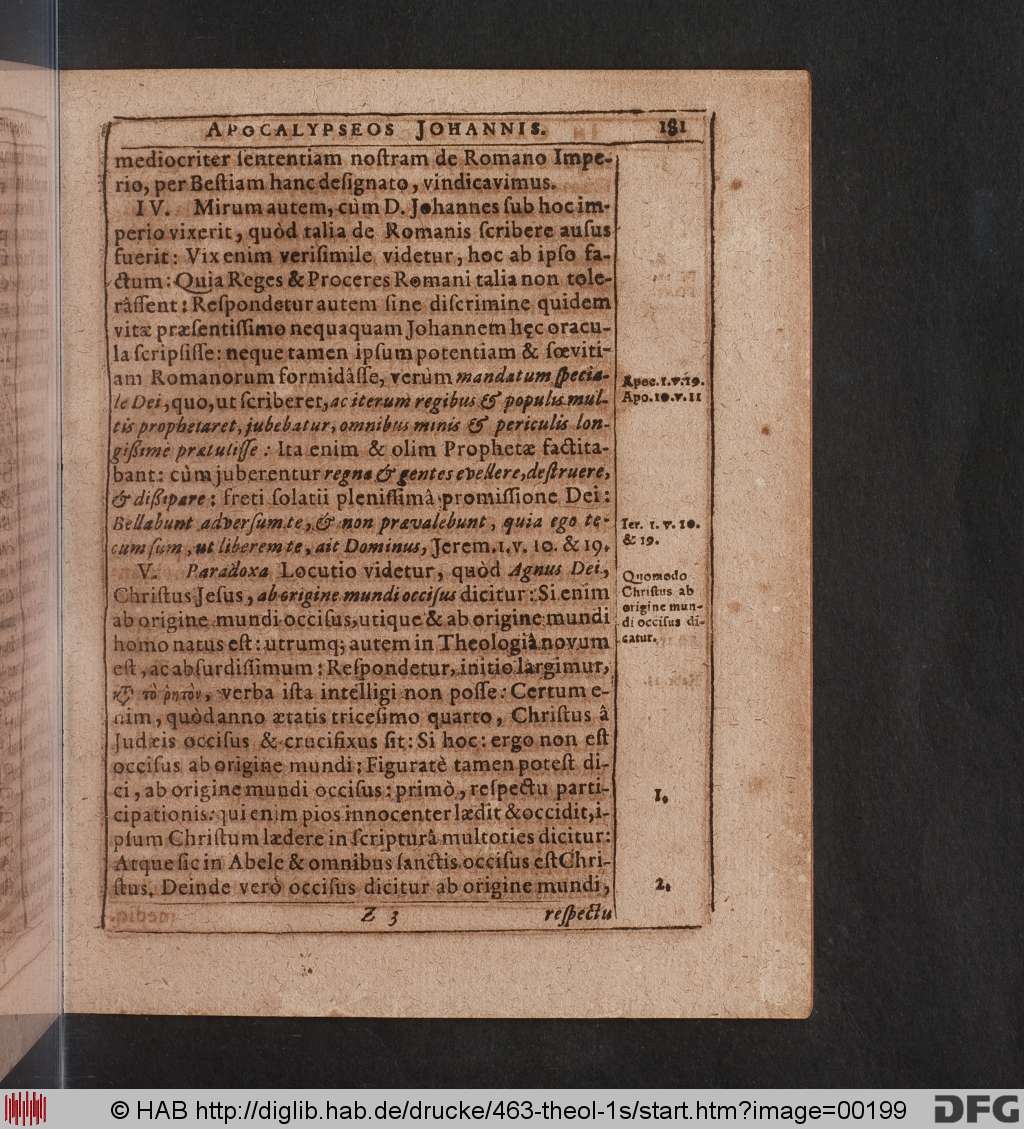 APOCALYPSEOS JOHANNIS. 181
mediocriter ſententiam noſtram de Romano Impe-
rio, per Beſtiam hanc deſignato, vindicavimus.
IV. Mirum autem, cùm D. Johannes ſub hoc im-
perio vixerit, quòd talia de Romanis ſcribere auſus
fuerit: Vix enim veriſimile videtur, hoc ab ipſo fa-
ctum: Quia Reges & Proceres Romani talia non tole-
râſſent: Reſpondetur autem ſine diſcrimine quidem
vitæ præſentiſſimo nequaquam Johannem hęc oracu-
la ſcripſiſſe: neque tamen ipſum potentiam & ſœviti-
am Romanorum formidâſſe, verùm mandatum ſpecia-
le Dei, quo, ut ſcriberet, ac iterum regibus & populis mul-
tis prophetaret, jubebatur, omnibus minis & periculis lon-
giſſimè prætuliſſe: Ita enim & olim Prophetæ factita-
bant: cùm juberentur regna & gentes evellere, deſtruere,
& diſſipare: freti ſolatii pleniſſimâ promiſſione Dei:
Bellabunt adverſum te, & non prævalebunt, quia ego te-
cum ſum, ut liberem te, ait Dominus, Jerem.1.v. 10. & 19.
V. Paradoxa Locutio videtur, quòd Agnus Dei,
Chriſtus Jeſus, ab origine mundi occiſus dicitur: Si enim
ab origine mundi occiſus, utique & ab origine mundi
homo natus eſt: utrumq; autem in Theologiâ novum
eſt, ac abſurdiſſimum: Reſpondetur, initio largimur,
κϟ τὸ ῥητὸν, verba iſta intelligi non poſſe: Certum e-
nim, quòd anno ætatis triceſimo quarto, Chriſtus â
Judæis occiſus & crucifixus ſit: Si hoc: ergo non eſt
occiſus ab origine mundi; Figuratè tamen poteſt di-
ci, ab origine mundi occiſus: primò, reſpectu parti-
cipationis: qui enim pios innocenter lædit & occidit, i-
pſum Chriſtum lædere in ſcripturâ multoties dicitur:
Atque ſic in Abele & omnibus ſanctis occiſus eſt Chri-
ſtus. Deinde verò occiſus dicitur ab origine mundi,
Z 3 reſpectu
Apoc.1.v.19.
Apo.10.v.11
Ier. 1. v. 10.
& 19.
Quomodo
Chriſtus ab
origine mun-
di occiſus di-
catur.
1.
2.
© HAB http://diglib.hab.de/drucke/463-theol-1s/start.htm?image=00199
DFG